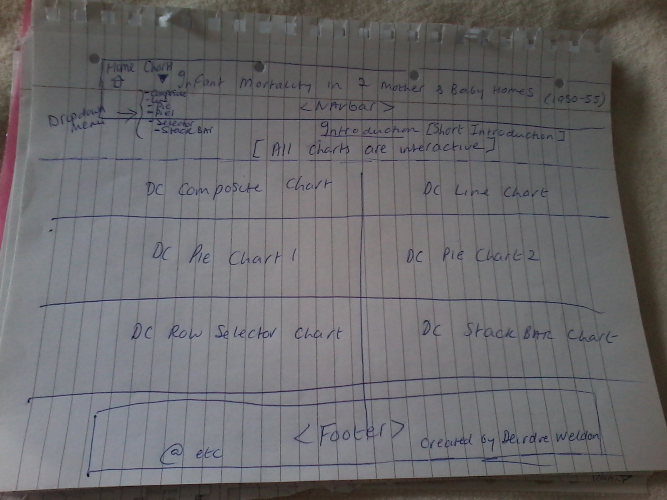 Home Charts
Infant Mortality in 7 Mother & Baby Homes (1950-55)
<NAVbar>
Dropdown menu
- Composite
- Line
- Pie
- Pie1
- Selector
- Stack BAR
Introduction [Short Introduction]
[All charts are interactive]
DC Composite Chart
DC Line Chart
DC Pie Chart 1
DC Pie Chart 2
DC Row Selector Chart
DC Stack BAR Chart
<Footer>
@ etc
Created by Deirdre Weldon